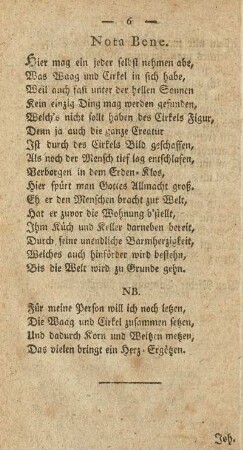 — 6 —
Nota Bene.
Hier mag ein jeder selbst nehmen abe,
Was Waag und Cirkel in sich habe,
Weil auch fast unter der hellen Sonnen
Kein einzig Ding mag werden gefunden,
Welch's nicht sollt haben des Cirkels Figur,
Denn ja auch die ganze Creatur
Ist durch des Cirkels Bild geschaffen,
Als noch der Mensch tief lag entschlafen,
Verborgen in dem Erden-Klos,
Hier spürt man Gottes Allmacht groß.
Eh er den Menschen bracht zur Welt,
Hat er zuvor die Wohnung b'stellt,
Ihm Küch und Keller darneben bereit,
Durch seine unendliche Barmherzigkeit,
Welches auch hinförder wird bestehn,
Bis die Welt wird zu Grunde gehn.
NB.
Für meine Person will ich noch letzen,
Die Waag und Cirkel zusammen setzen,
Und dadurch Korn und Weitzen metzen,
Das vielen bringt ein Herz-Ergötzen.
Joh.